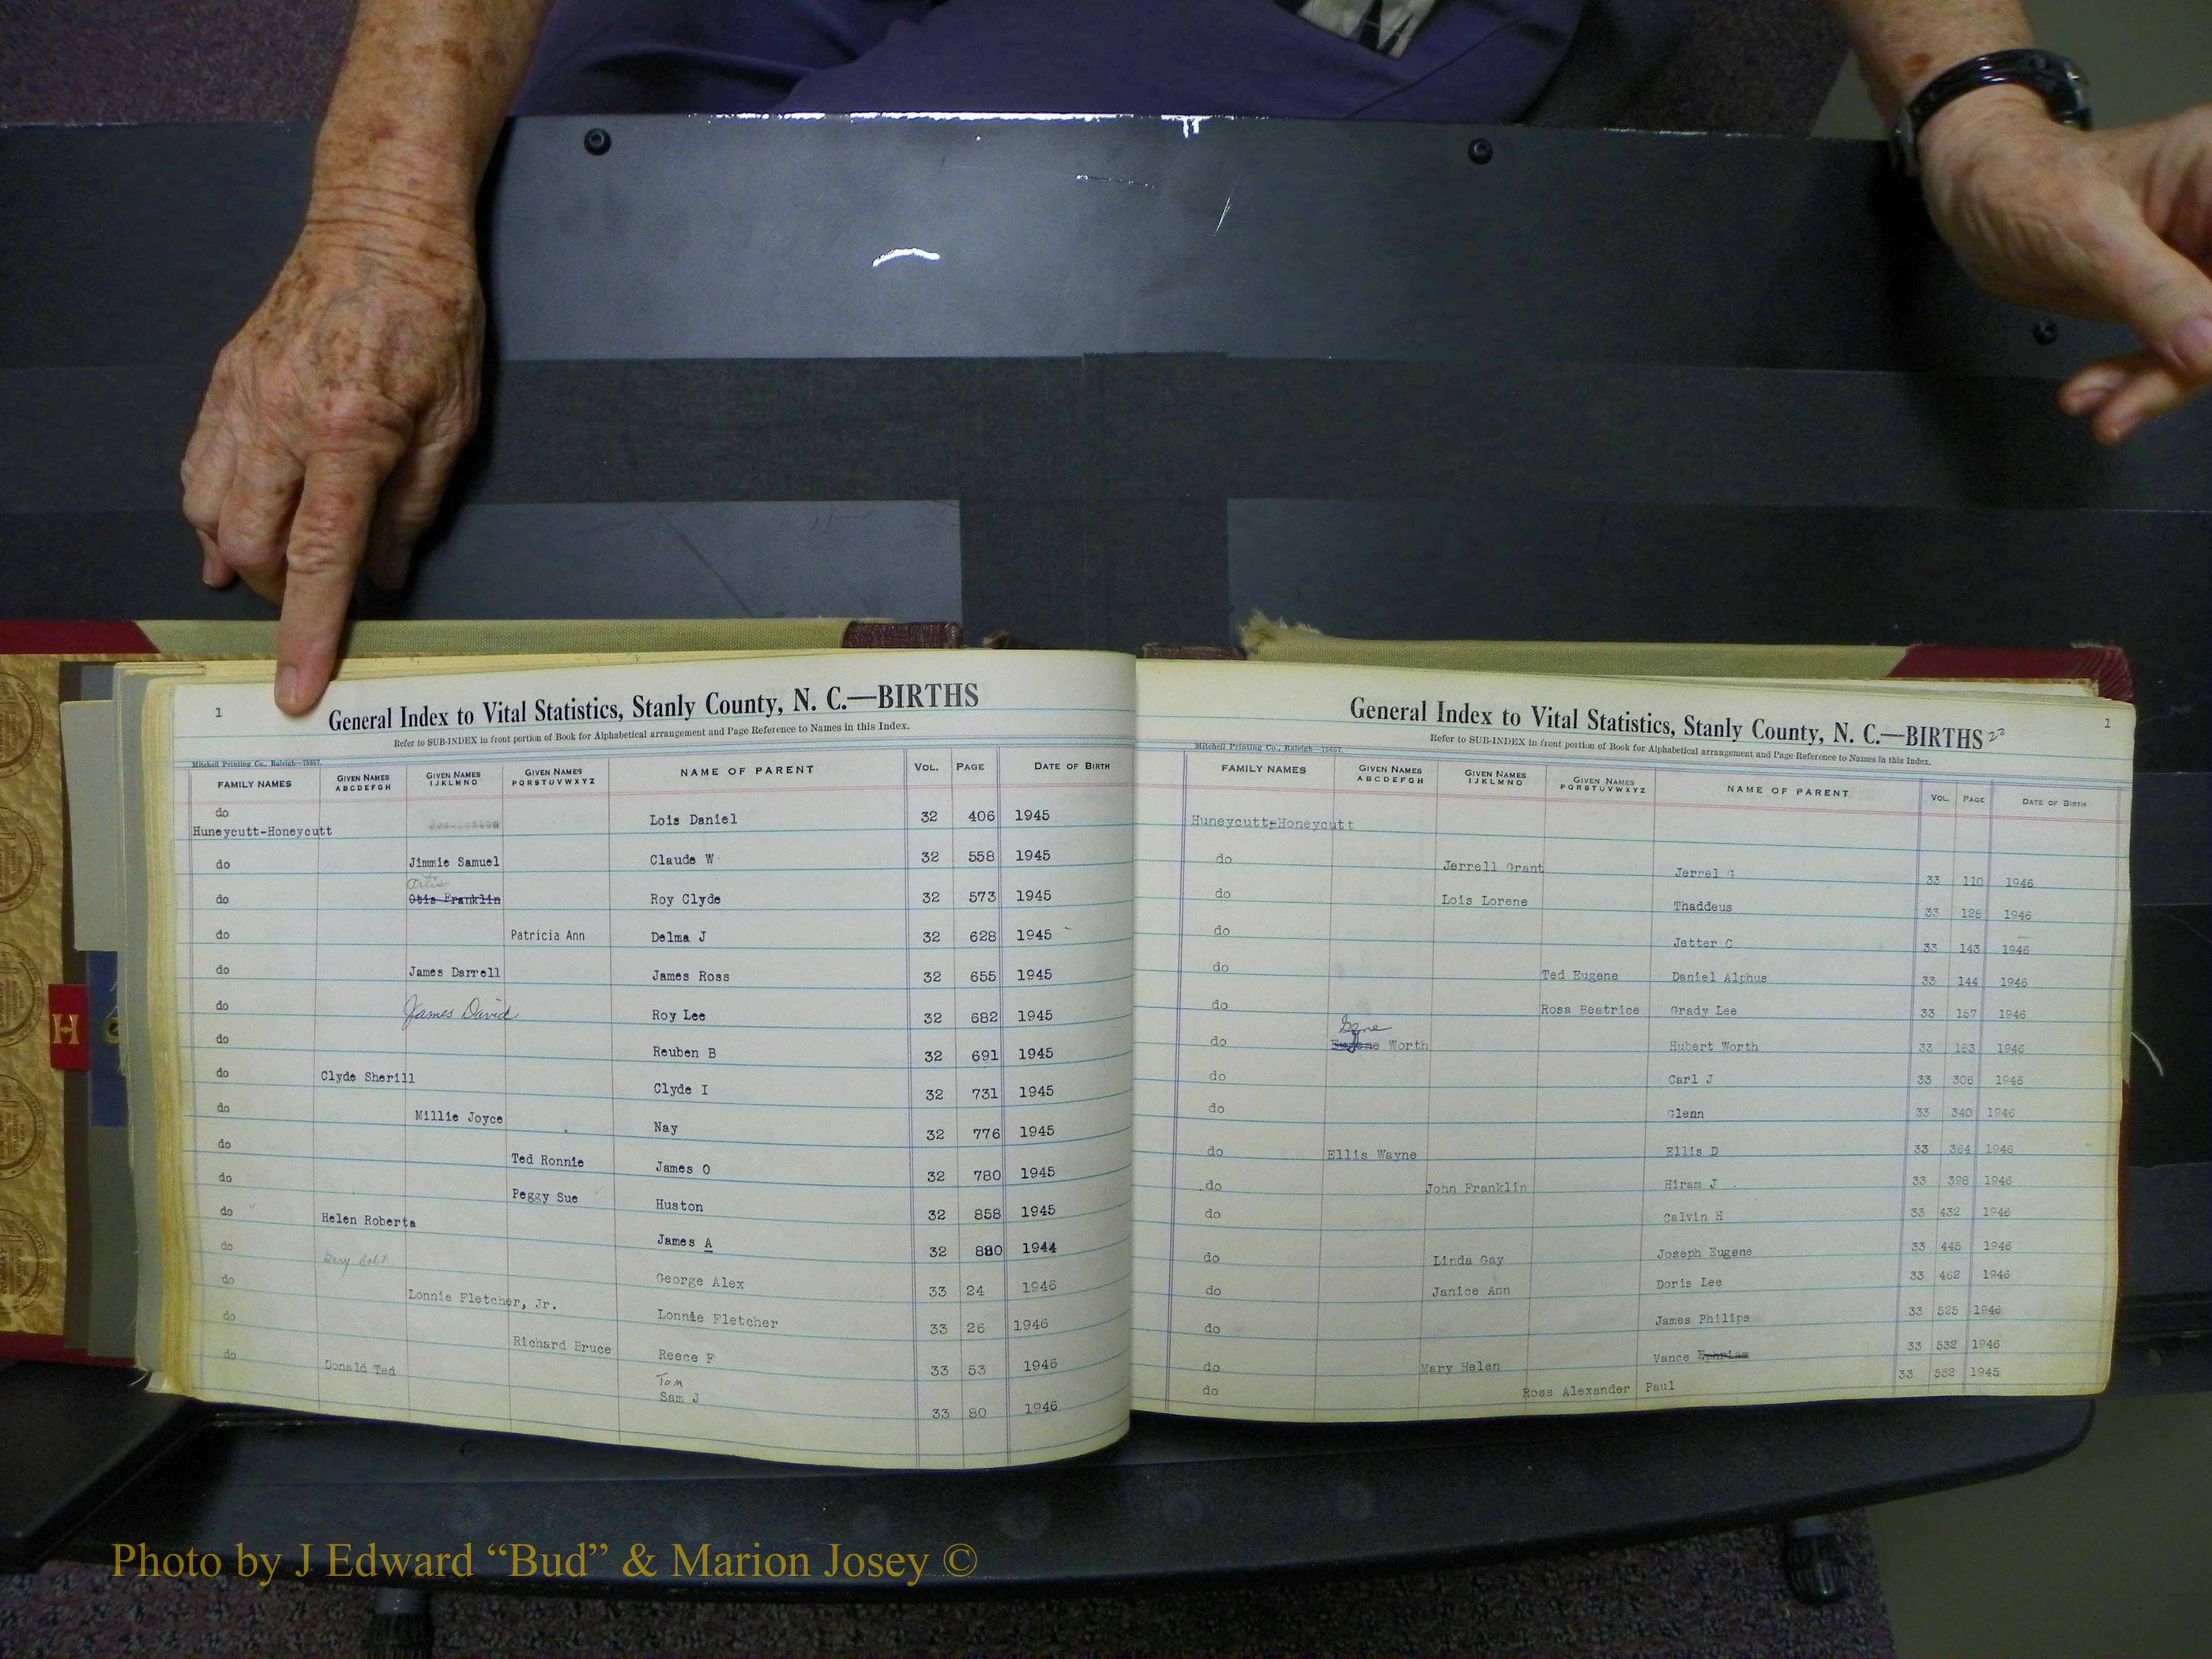 1
General Index to Vital Statistics, Stanly County, N. C.—BIRTHS
Refer to SUB-INDEX in front portion of Book for Alphabetical arrangement and Page Reference to Names in this Index.
Mitchell Printing Co., Raleigh—75657.
FAMILY NAMES GIVEN NAMES ABCDEFGH GIVEN NAMES IJKLMNO GIVEN NAMES PQRSTUVWXYZ NAME OF PARENT VOL. PAGE DATE OF BIRTH
do
Huneycutt-Honeycutt Lois Daniel 32 406 1945
do Jimmie Samuel Claude W 32 558 1945
Artis
do Otis Franklin Roy Clyde 32 573 1945
do Patricia Ann Delma J 32 628 1945
do James Darrell James Ross 32 655 1945
do James David Roy Lee 32 682 1945
do Reuben B 32 691 1945
do Clyde Sherill Clyde I 32 731 1945
do Millie Joyce Nay 32 776 1945
do Ted Ronnie James O 32 780 1945
do Peggy Sue Huston 32 858 1945
do Helen Roberta James A 32 880 1944
do George Alex 33 24 1946
do Lonnie Fletcher, Jr. Lonnie Fletcher 33 26 1946
do Richard Bruce Reece F 33 53 1946
Tom
do Donald Ted Sam J 33 80 1946
1
General Index to Vital Statistics, Stanly County, N. C.—BIRTHS 22
Refer to SUB-INDEX in front portion of Book for Alphabetical arrangement and Page Reference to Names in this Index.
Mitchell Printing Co., Raleigh—75657.
FAMILY NAMES GIVEN NAMES ABCDEFGH GIVEN NAMES IJKLMNO GIVEN NAMES PQRSTUVWXYZ NAME OF PARENT VOL. PAGE DATE OF BIRTH
Huneycutt-Honeycutt
do Jerrell Grant Jerrel G 33 110 1946
do Lois Lorene Thaddeus 33 128 1946
do Jetter C 33 143 1946
do Ted Eugene Daniel Alphus 33 144 1946
do Rosa Beatrice Grady Lee 33 157 1946
Gene
do Eugene Worth Hubert Worth 33 183 1946
do Carl J 33 306 1946
do Glenn 33 340 1946
do Ellis Wayne Ellis D 33 364 1946
do John Franklin Hiram J 33 398 1946
do Calvin H 33 432 1946
do Linda Gay Joseph Eugene 33 445 1946
do Janice Ann Doris Lee 33 462 1946
do James Philips 33 525 1946
do Mary Helen Vance Ephriam 33 532 1946
do Ross Alexander Paul 33 552 1945
H
Photo by J Edward “Bud” & Marion Josey ©